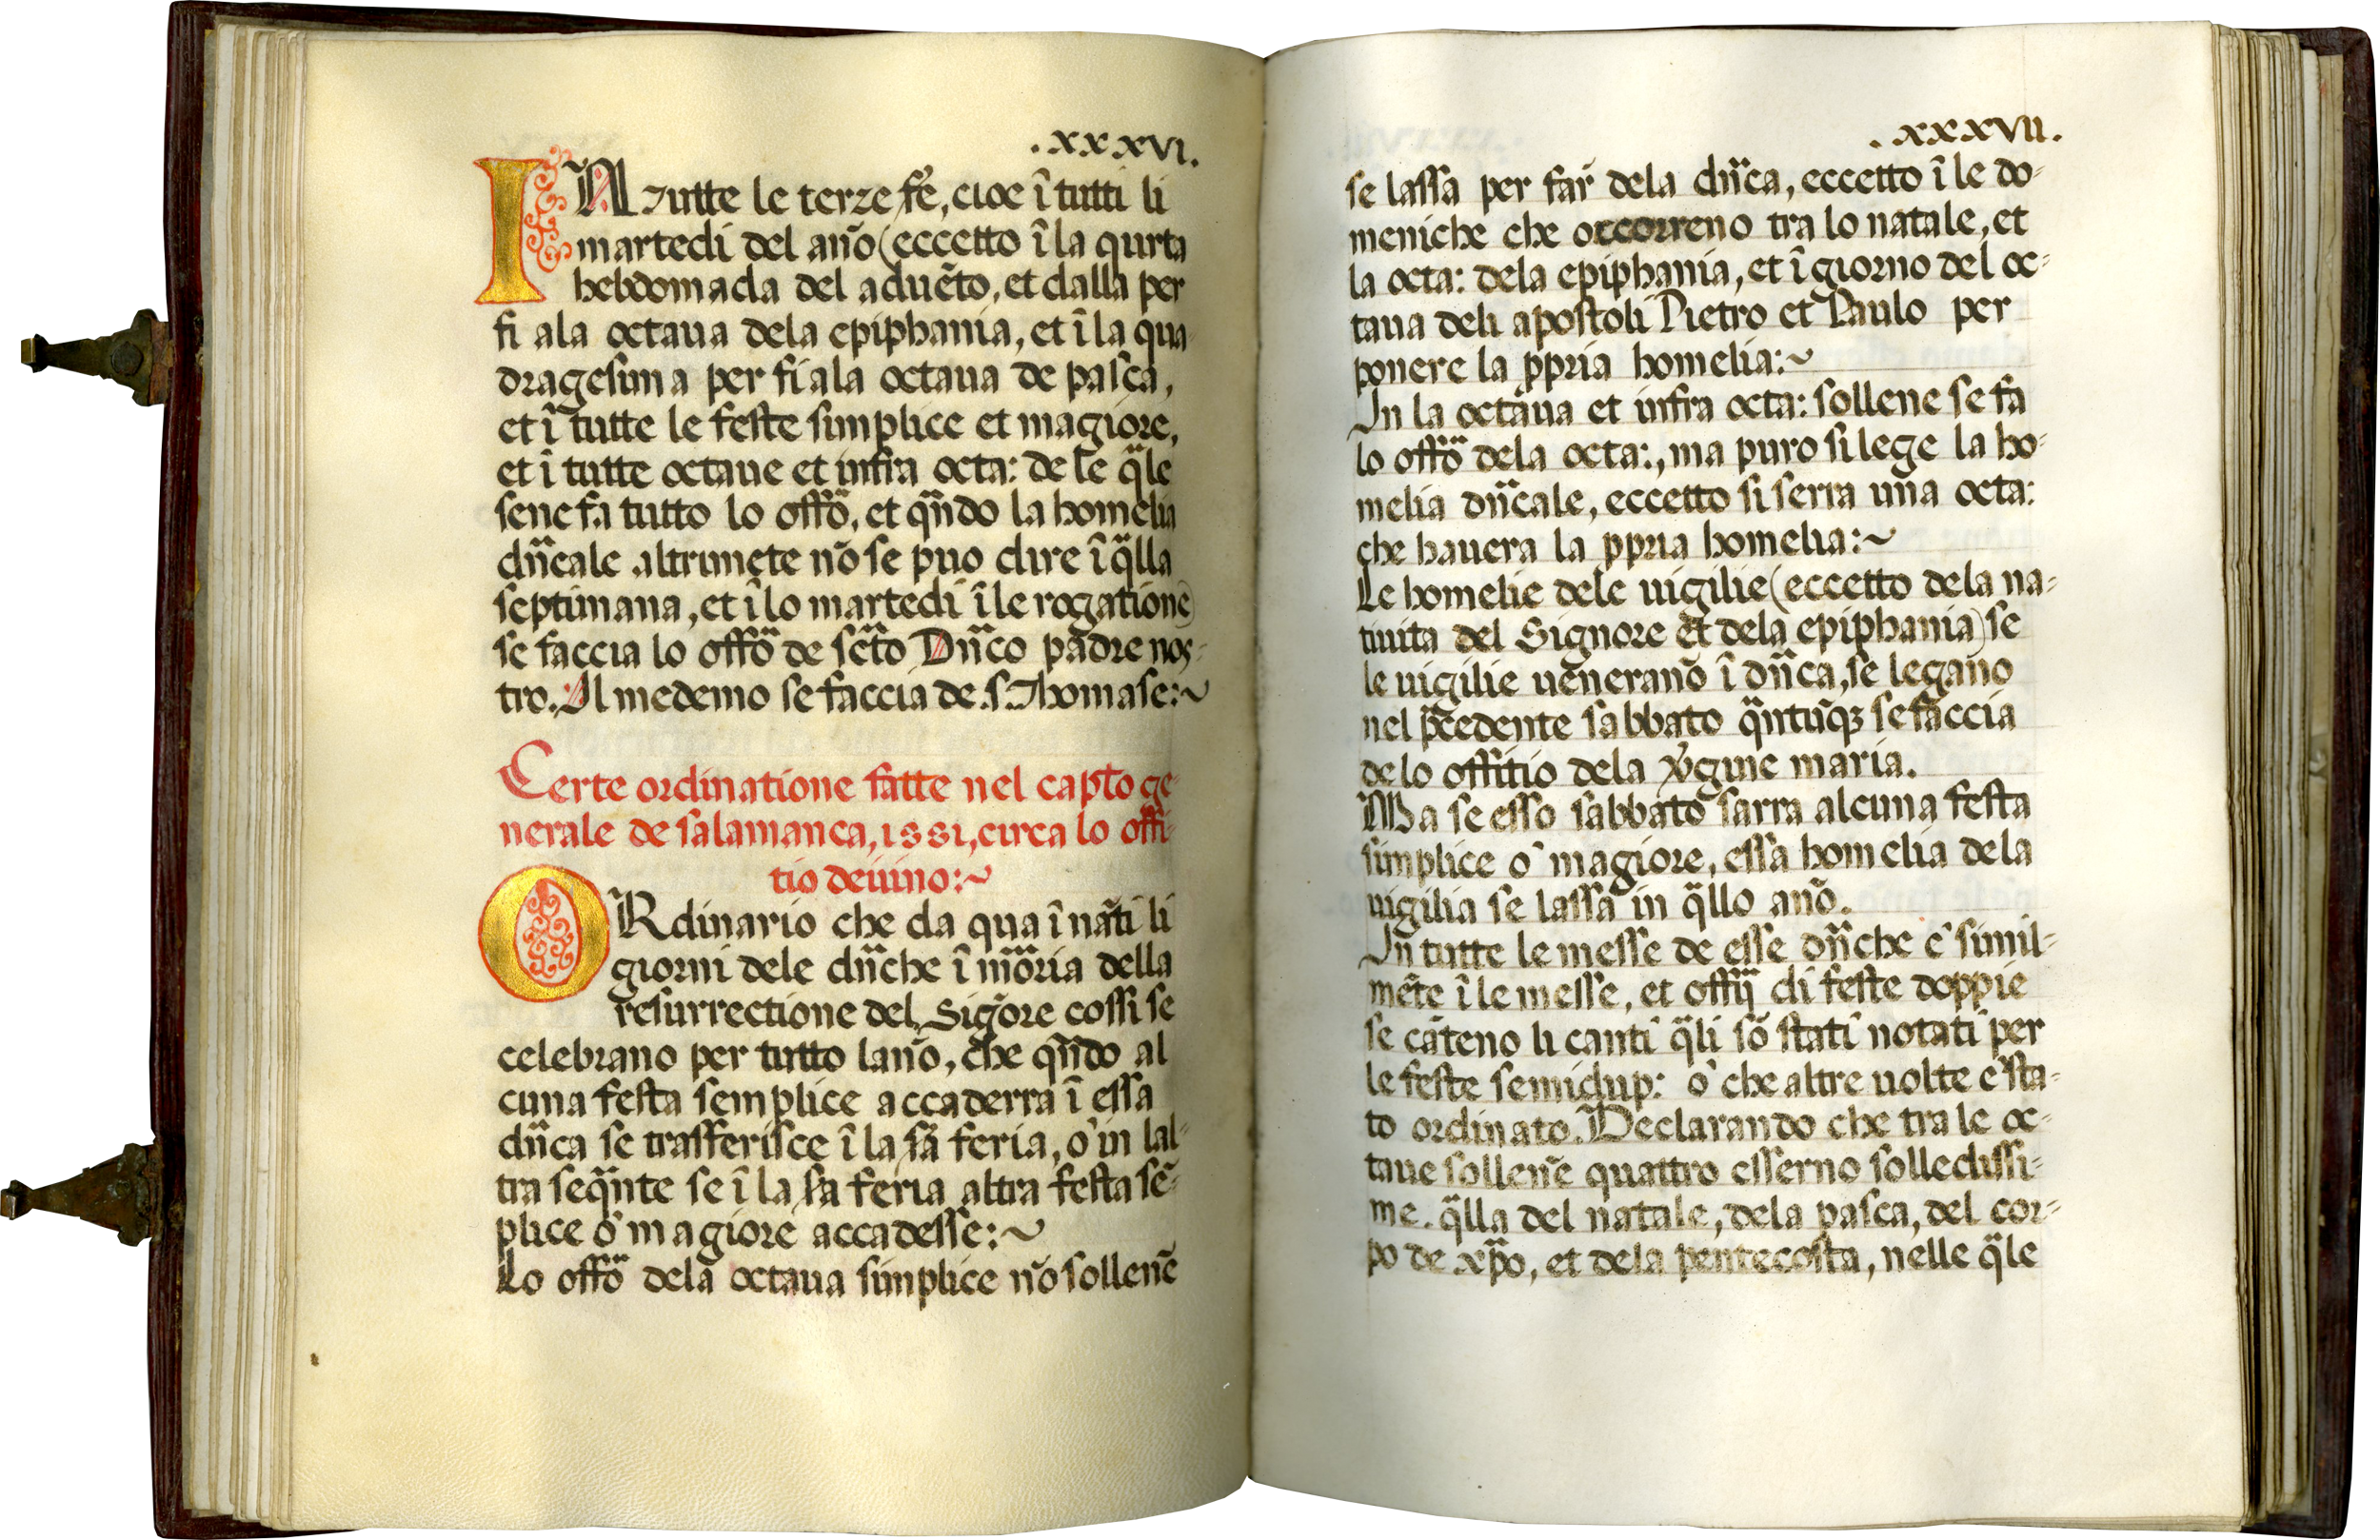 .xxxvi.
IÑ tutte le terze fe͂, cioe ĩ tutti li
martedi del año (eccetto ĩ la qurta
hebdomada del aduẽto, et dalla per
fi ala octaua dela epiphania, et ĩ la qua
dragesima per fi ala octaua de pasca,
et ĩ tutte le feste simplice et magiore,
et ĩ tutte octaue et infra octa: de le q̃le
sene fa tutto lo offõ, et qñdo la homelia
dñcale altrimẽte nõ se puo dire ĩ q̃lla
septimana, et ĩ lo martedi ĩ le rogatione)
se faccia lo offõ de sc̃to Dñco padre nos-
tro. Il medemo se faccia de .s. Thomase:~
Certe ordinatione fatte nel capto ge-
nerale de salamanca, 1551, circa lo offi-
tio deiuino:~
ORdinario che da qua ĩ nãti li
giorni dele dñche ĩ mõria della
resurrectione del Sigõre cossi se
celebrano per tutto lano, che qñdo al
cuna festa semplice accaderra ĩ essa
dñca se trasferisce ĩ la sã feria, o' in lal-
tra seq̃nte se ĩ la sã feria altra festa sẽ-
plice o' magiore accadesse:~
Lo offõ dela octaua simplice nõ sollenẽ
.xxxvii.
se lassa per far̃ dela dñca, eccetto ĩ le do-
meniche che occorreno tra lo natale, et
la octa: dela epiphania, et ĩ giorno del oc-
taua deli apostoli Pietro et Paulo per
ponere la ppria homelia:~
In la octaua et infra octa: sollene se fa
lo offõ dela octa:, ma puro si lege la ho-
melia dñcale, eccetto si serra uña octa:
che hauera la ppria homelia:~
Le homelie dele uigilie (eccetto dela na-
tiuita del Signore et dela epiphania) se
le uigilie uẽneranõ ĩ dñca, se legano
nel p̃cedente sabbato q̃ntũqz se faccia
de lo offitio dela vr̃gine maria.
Ma se esso sabbato sarra alcuna festa
simplice o' magiore, essa homelia dela
uigilia se lassa in q̃llo año.
In tutte le messe de esse dñche e' simil-
mẽte ĩ le messe, et offij di feste doppie
se cãteno li canti q̃li sõ stati notati per
le feste semidup: o' che altre uolte e' sta-
to ordinato. Declarando che tra le oc-
taue sollenẽ quattro esserno solledissi-
me. q̃lla del natale, dela pasca, del cor-
po de xp̃o, et dela pentecosta, nelle q̃le